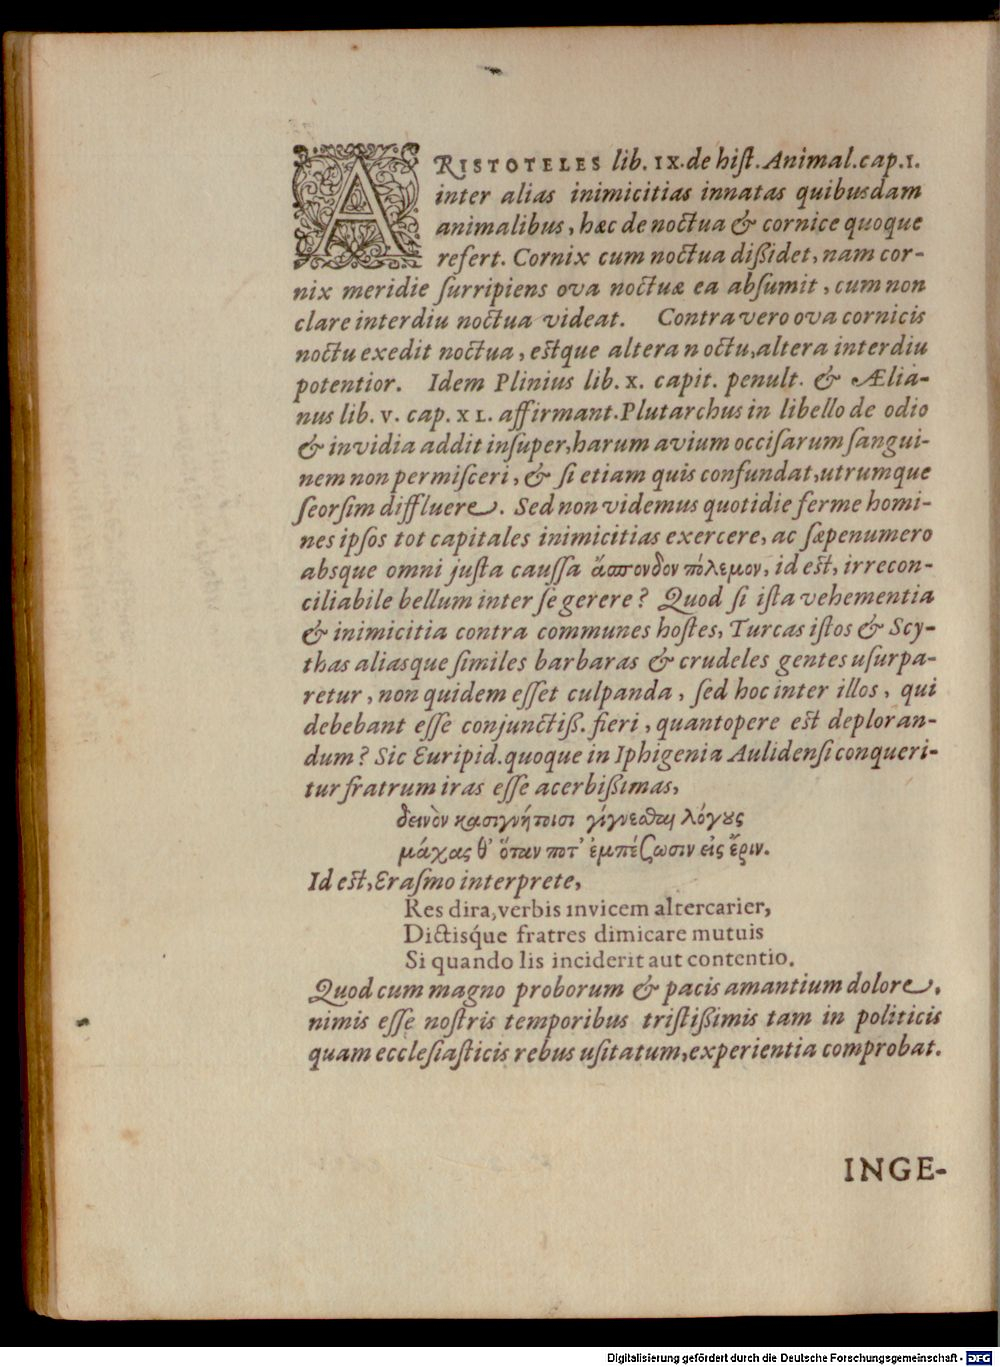 ARISTOTELES lib. IX. de hiſt. Animal. cap. I.
inter alias inimicitias innatas quibusdam
animalibus, hæc de noctua & cornice quoque
refert. Cornix cum noctua dißidet, nam cor-
nix meridie ſurripiens ova noctuæ ea abſumit, cum non
clare interdiu noctua videat. Contra vero ova cornicis
noctu exedit noctua, estque altera noctu, altera interdiu
potentior. Idem Plinius lib. X. capit. penult. & Ælia-
nus lib. V. cap. XL. affirmant. Plutarchus in libello de odio
& invidia addit inſuper, harum avium occiſarum ſangui-
nem non permiſceri, & ſi etiam quis confundat, utrumque
ſeorſim diffluere. Sed non videmus quotidie ferme homi-
nes ipſos tot capitales inimicitias exercere, ac ſæpenumero
absque omni juſta cauſſa ἄσπονδον πόλεμον, id est, irrecon-
ciliabile bellum inter ſe gerere? Quod ſi iſta vehementia
& inimicitia contra communes hoſtes, Turcas iſtos & Scy-
thas aliasque ſimiles barbaras & crudeles gentes uſurpa-
retur, non quidem eſſet culpanda, ſed hoc inter illos, qui
debebant eſſe conjunctiß. fieri, quantopere est deploran-
dum? Sic Euripid. quoque in Iphigenia Aulidenſi conqueri-
tur fratrum iras eſſe acerbißimas,
δεινὸν κασιγνήτοισι γίγνεσθαι λόγους
μάχας θ' ὅταν ποτ' ἐμπέζωσιν εἰς ἔριν.
Id est, Eraſmo interprete,
Res dira, verbis invicem altercarier,
Dictisq́ue fratres dimicare mutuis
Si quando lis inciderit aut contentio.
Quod cum magno proborum & pacis amantium dolore,
nimis eſſe noſtris temporibus triſtißimis tam in politicis
quam eccleſiaſticis rebus uſitatum, experientia comprobat.
INGE-
Digitalisierung gefördert durch die Deutsche Forschungsgemeinschaft - DFG